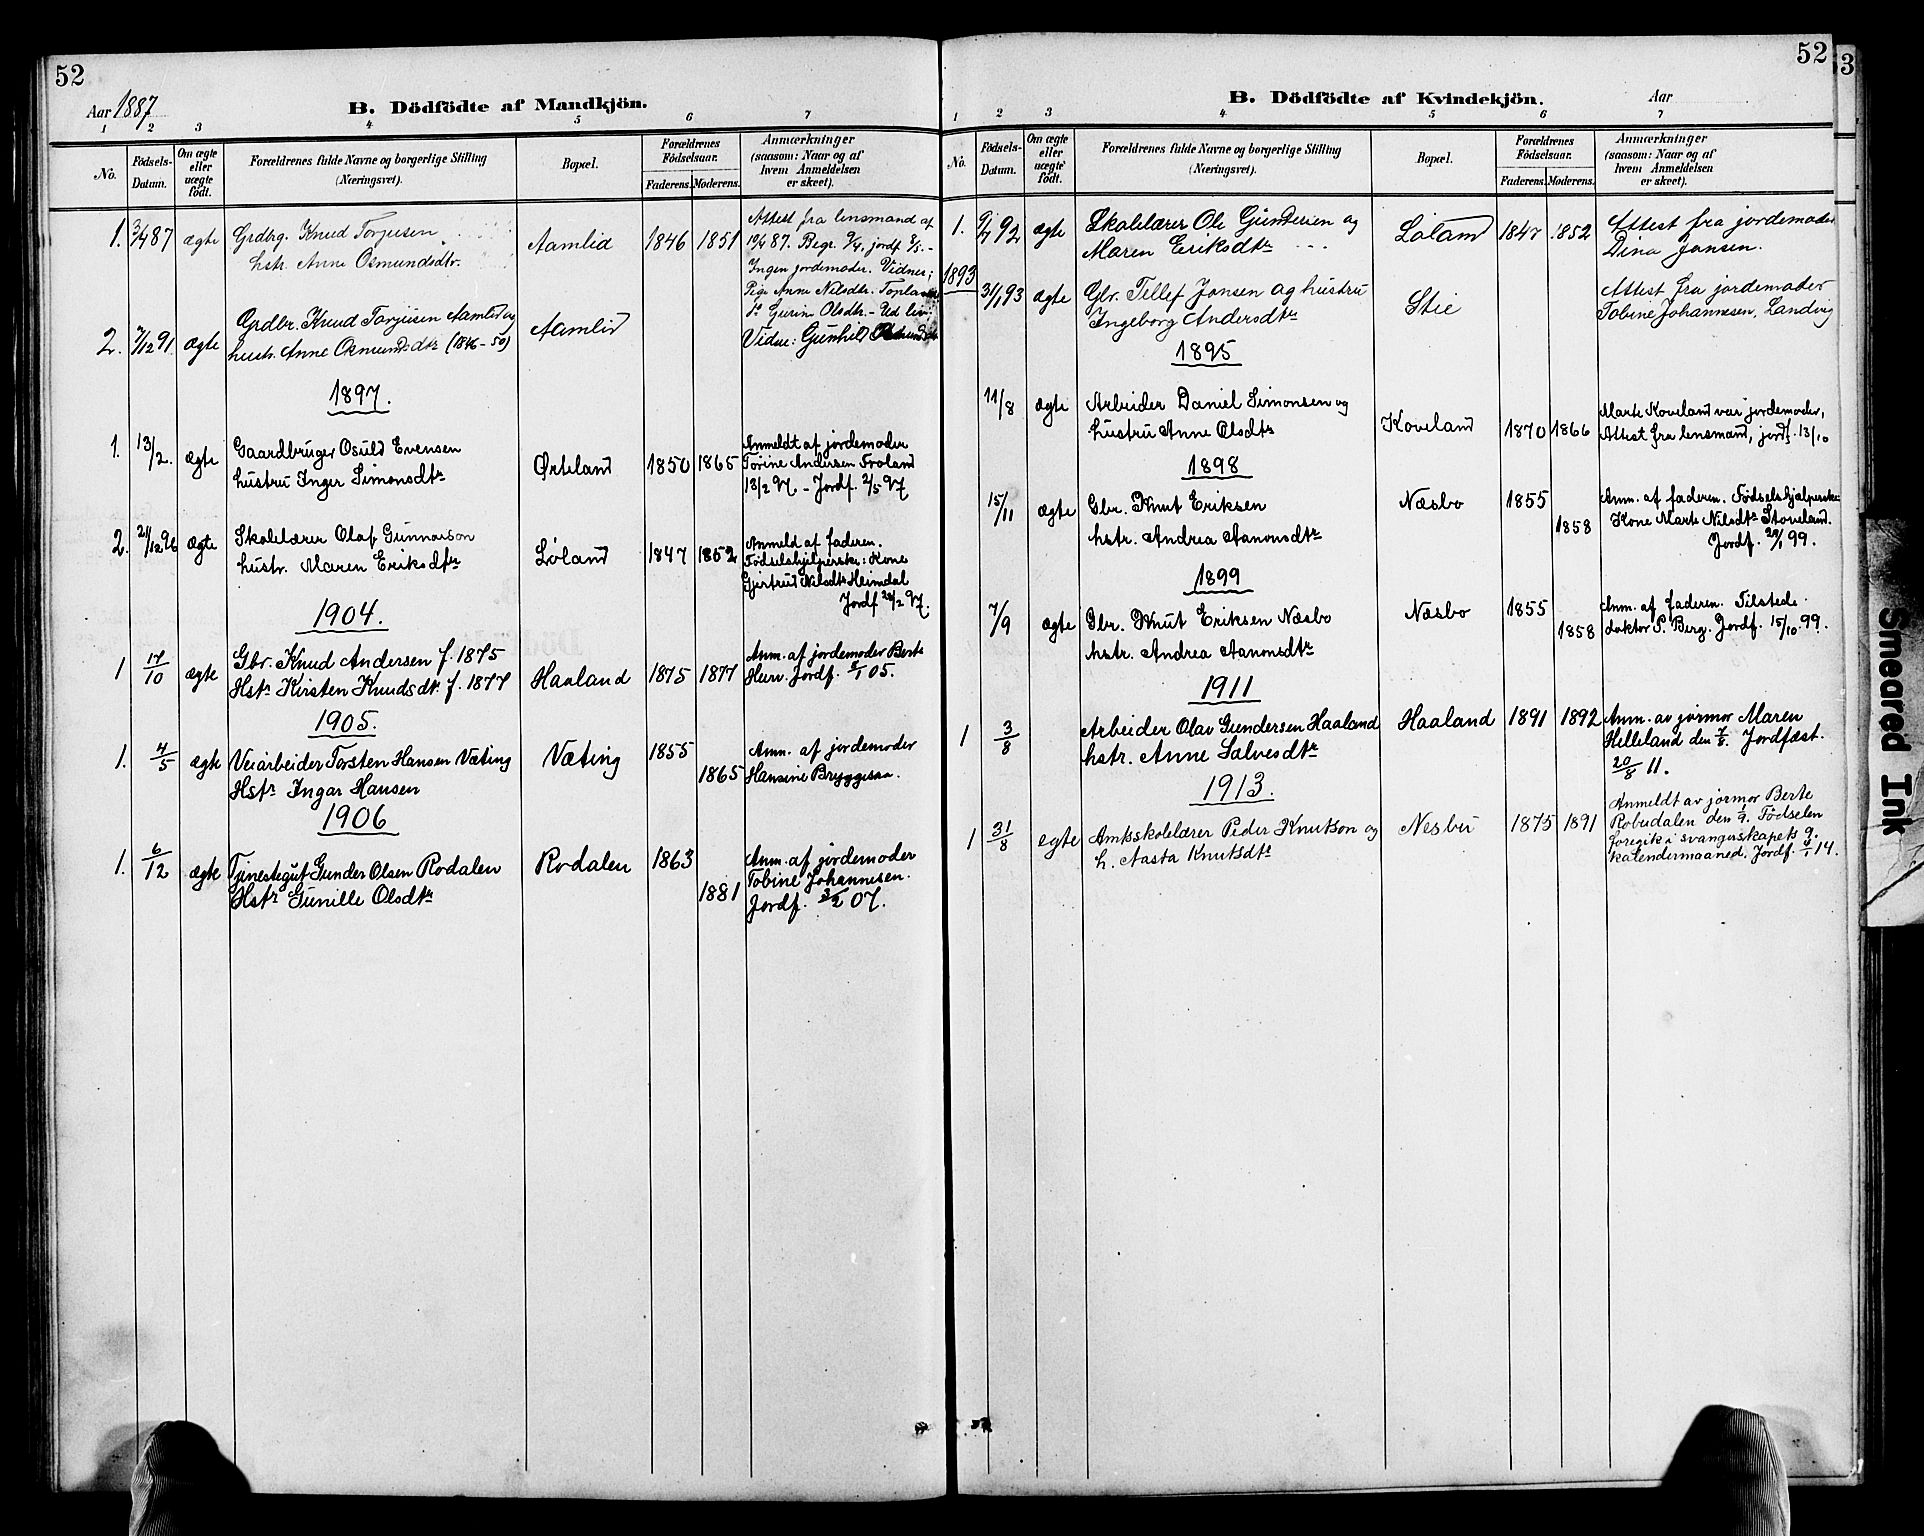 52
Aar 1887
B. Dödfödte af Mandkjön.
1 2 3 4 5 6 7
No.
Födsels-
Datum.
Om ægte
eller
uægte
födt.
Forældrenes fulde Navne og borgerlige Stilling
(Næringsvei).
Bopæl.
Forældrenes
Födselsaar.
Faderens. Moderens.
Anmærkninger
(saasom: Naar og af
hvem Anmeldelsen
er skeet).
1. 3/4 87 ægte Grdbrg. Knud Torjusen
hstr. Anne Osmundsdtr.
Aamlid 1846 1851
Attest fra lensmand af
19/4 87. Begr. 9/4, jordf. 8/5. -
Ingen jordemoder. Vidner;
Pige Anne Nilsdtr. Topland
Gurine Olsdtr. - Ud liv:
Vidne: Gunhild Osmundsdtr
2. 7/12 91. ægte Grdbr. Knud Torjusen Aamlid og
hustr. Anne Osmundsdtr (1846-50)
Aamlid
1897.
1. 13/2. ægte Gaardbruger Osuld Evensen
hustru Inger Simonsdtr
Ørteland 1850 1865
Anmeldt af jordemoder
Torine Andersen Froland
13/2 97. - Jordf. 2/5 97
2. 21/12 96 ægte Skolelærer Olaf Gunnarson
hustr. Maren Eriksdtr
Løland 1847 1852
Anmeld af faderen.
Fødselshjelperske: Kone
Gjertrud Nilsdtr Heimdal
Jordf 28/2 97.
1904.
1 17/10 ægte Gbr. Knud Andersen f. 1875
Hstr Kirsten Knudsdtr f. 1877
Haaland 1875 1877
Anm. af jordemoder Berte
Jordf. 8/1 05.
1905.
1. 4/5 ægte Veiarbeider Torsten Hansen Væting
Hstr Ingar Hansen
Væting 1855 1865
Anm. af jordemoder
Hansine Bryggesaa.
1906
1. 6/12 ægte Tjenestegut Gunder Olsen Rodalen
Hstr Gunille Olsdtr
Rodalen 1863 1881
Anm. af jordemoder
Tobine Johannesen.
Jordf. 3/2 07.
52
B. Dödfödte af Kvindekjön.
Aar
1 2 3 4 5 6 7
No.
Födsels-
Datum.
Om ægte
eller
uægte
födt.
Forældrenes fulde Navne og borgerlige Stilling
(Næringsvei).
Bopæl.
Forældrenes
Födselsaar.
Faderens. Moderens.
Anmærkninger
(saasom: Naar og af
hvem Anmeldelsen
er skeet).
1. 9/7 92 ægte Skolelærer Ole Gundersen og
Maren Eriksdtr
Løland 1847 1852
Attest fra jordemoder
Dina Jansen.
1893
31/1 93 ægte Gbr. Tellef Jonsen og hustru
Ingeborg Andersdtr
Stie
Attest fra jordemoder
Tobine Johannesen, Landvig
1895
11/8 ægte Arbeider Daniel Simonsen og
hustru Anne Olsdtr
Koveland 1870 1866
Marte Koveland var jordemoder,
Attest fra lensmand, jordf. 13/10
1898
15/11 ægte Gbr. Knut Eriksen
hstr. Andrea Aanonsdtr
Næsbø 1855 1858
Anm. af faderen. Fødselshjælperske
Kone Marte Nilsdtr Stoveland.
Jordf. 29/1 99.
1899
7/9 ægte Gbr. Knut Eriksen Næsbo
hstr. Andrea Aanonsdtr
Næsbo 1855 1858
Anm. af faderen. Tilstede
doktor P. Berg. Jordf. 15/10 99.
1911
1 3/8 Arbeider Olav Gundersen Haaland
hstr. Anne Salvesdtr
Haaland 1891 1892
Anm. av jormor Maren
Helleland den 7/8. Jordfæst.
20/8 11.
1913.
1 31/8 egte Amtsskolelærer Peder Knutson og
h. Aasta Knutsdtr
Nesbu 1875 1891
Anmeldt av jormor Berte
Robudalen den 1/9. Fødselen
foregik i svangerskapets 9.
kalendermaaned. Jordf. 4/1 14.
3
Smeared Ink